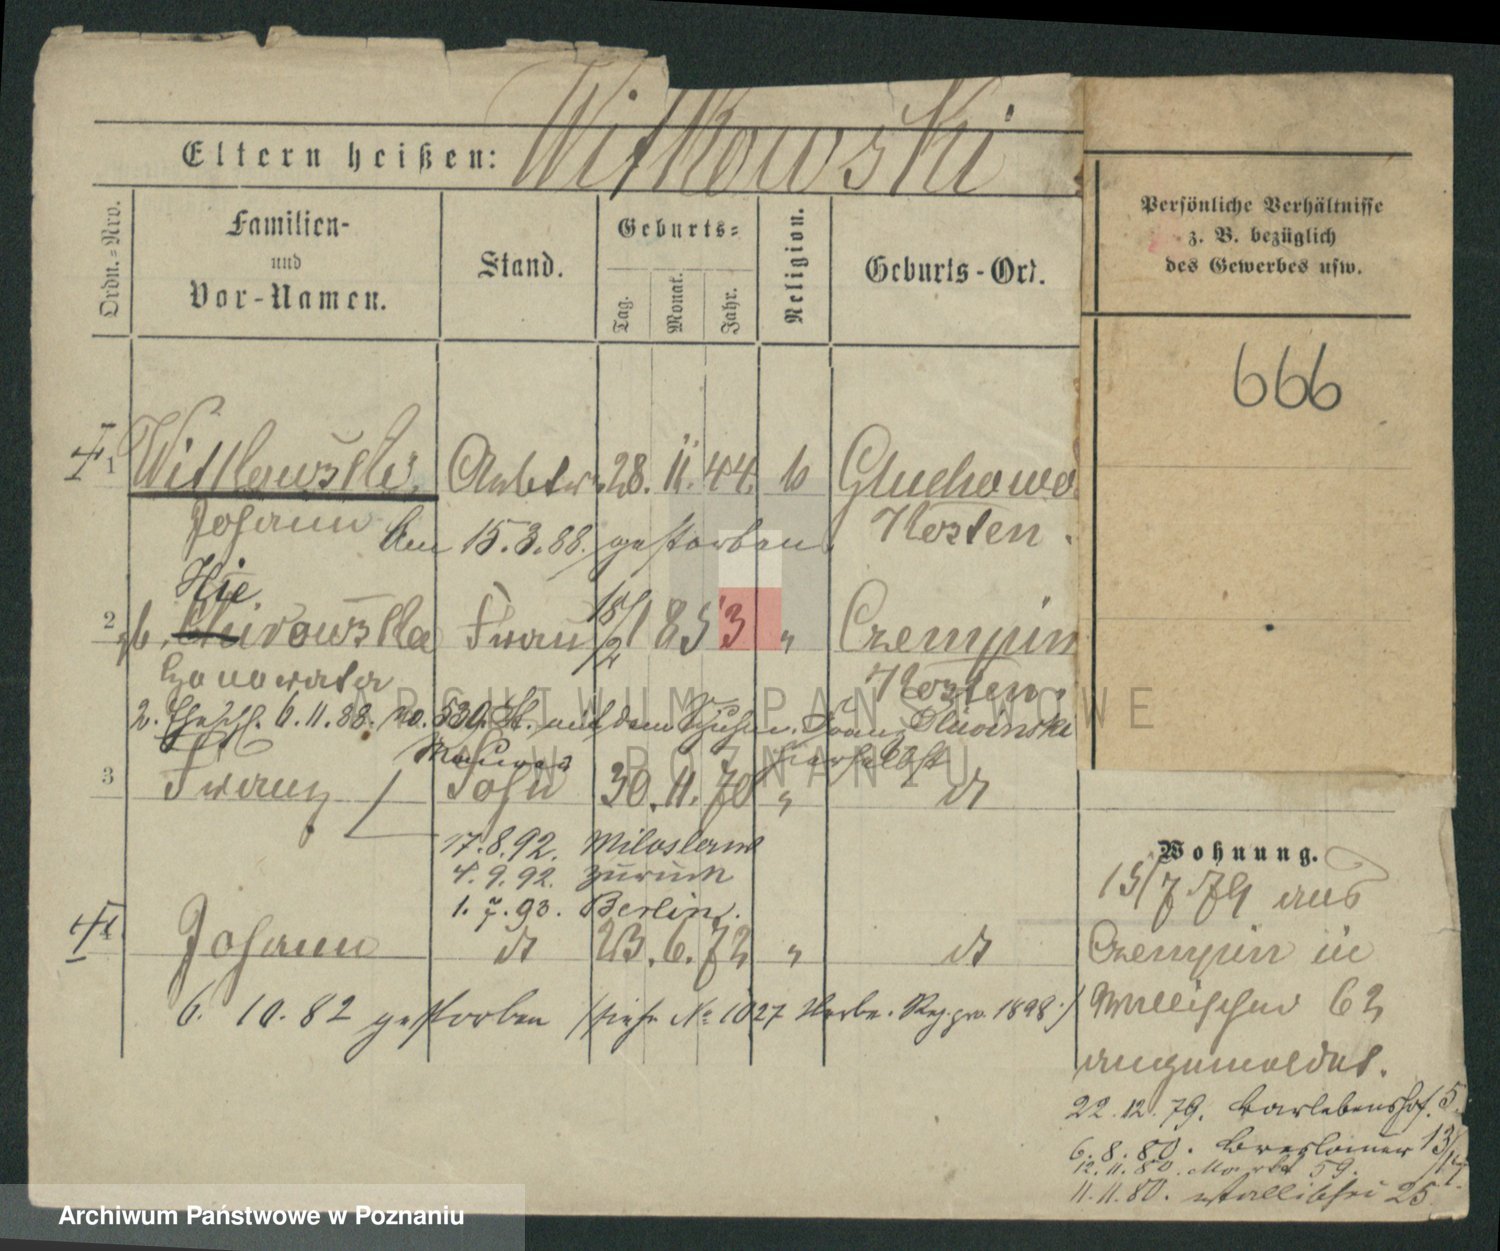 Witkowski
Eltern heißen:
Ordn.=Nro.
Familien-
und
Vor-Namen.
Stand.
Geburts=
Tag.
Monat.
Jahr.
Religion.
Geburts-Ort.
Persönliche Verhältnisse
z. B. bezüglich
des Gewerbes usw.
666
1 Witkowski 28. 11. 44. Gluchowo
Johann Am 15.3.88. gestorben. Kosten.
2 Frau 18/2 1853 " Czempin
Kosten.
2. 6.11.88. No. 530 mit dem Franz
hierselbst
3 Franz Sohn 30. 11. 70 " dt
17.8.92. Miloslaw
4.9.92. zurück
1. 7. 93. Berlin.
4 Johann dt 23. 6. 72 " dt
6. 10. 82 gestorben (siehe No 1027 1898.)
Wohnung.
15/7 79 aus
Czempin in
Wallischei 62
angemeldet.
22.12.79. 5.
6.8.80. Breslauer 13/14
12.11.80. Markt 59.
11.11.80. Wallischei 25
ARCHIWUM PAŃSTWOWE
W POZNANIU
Archiwum Państwowe w Poznaniu